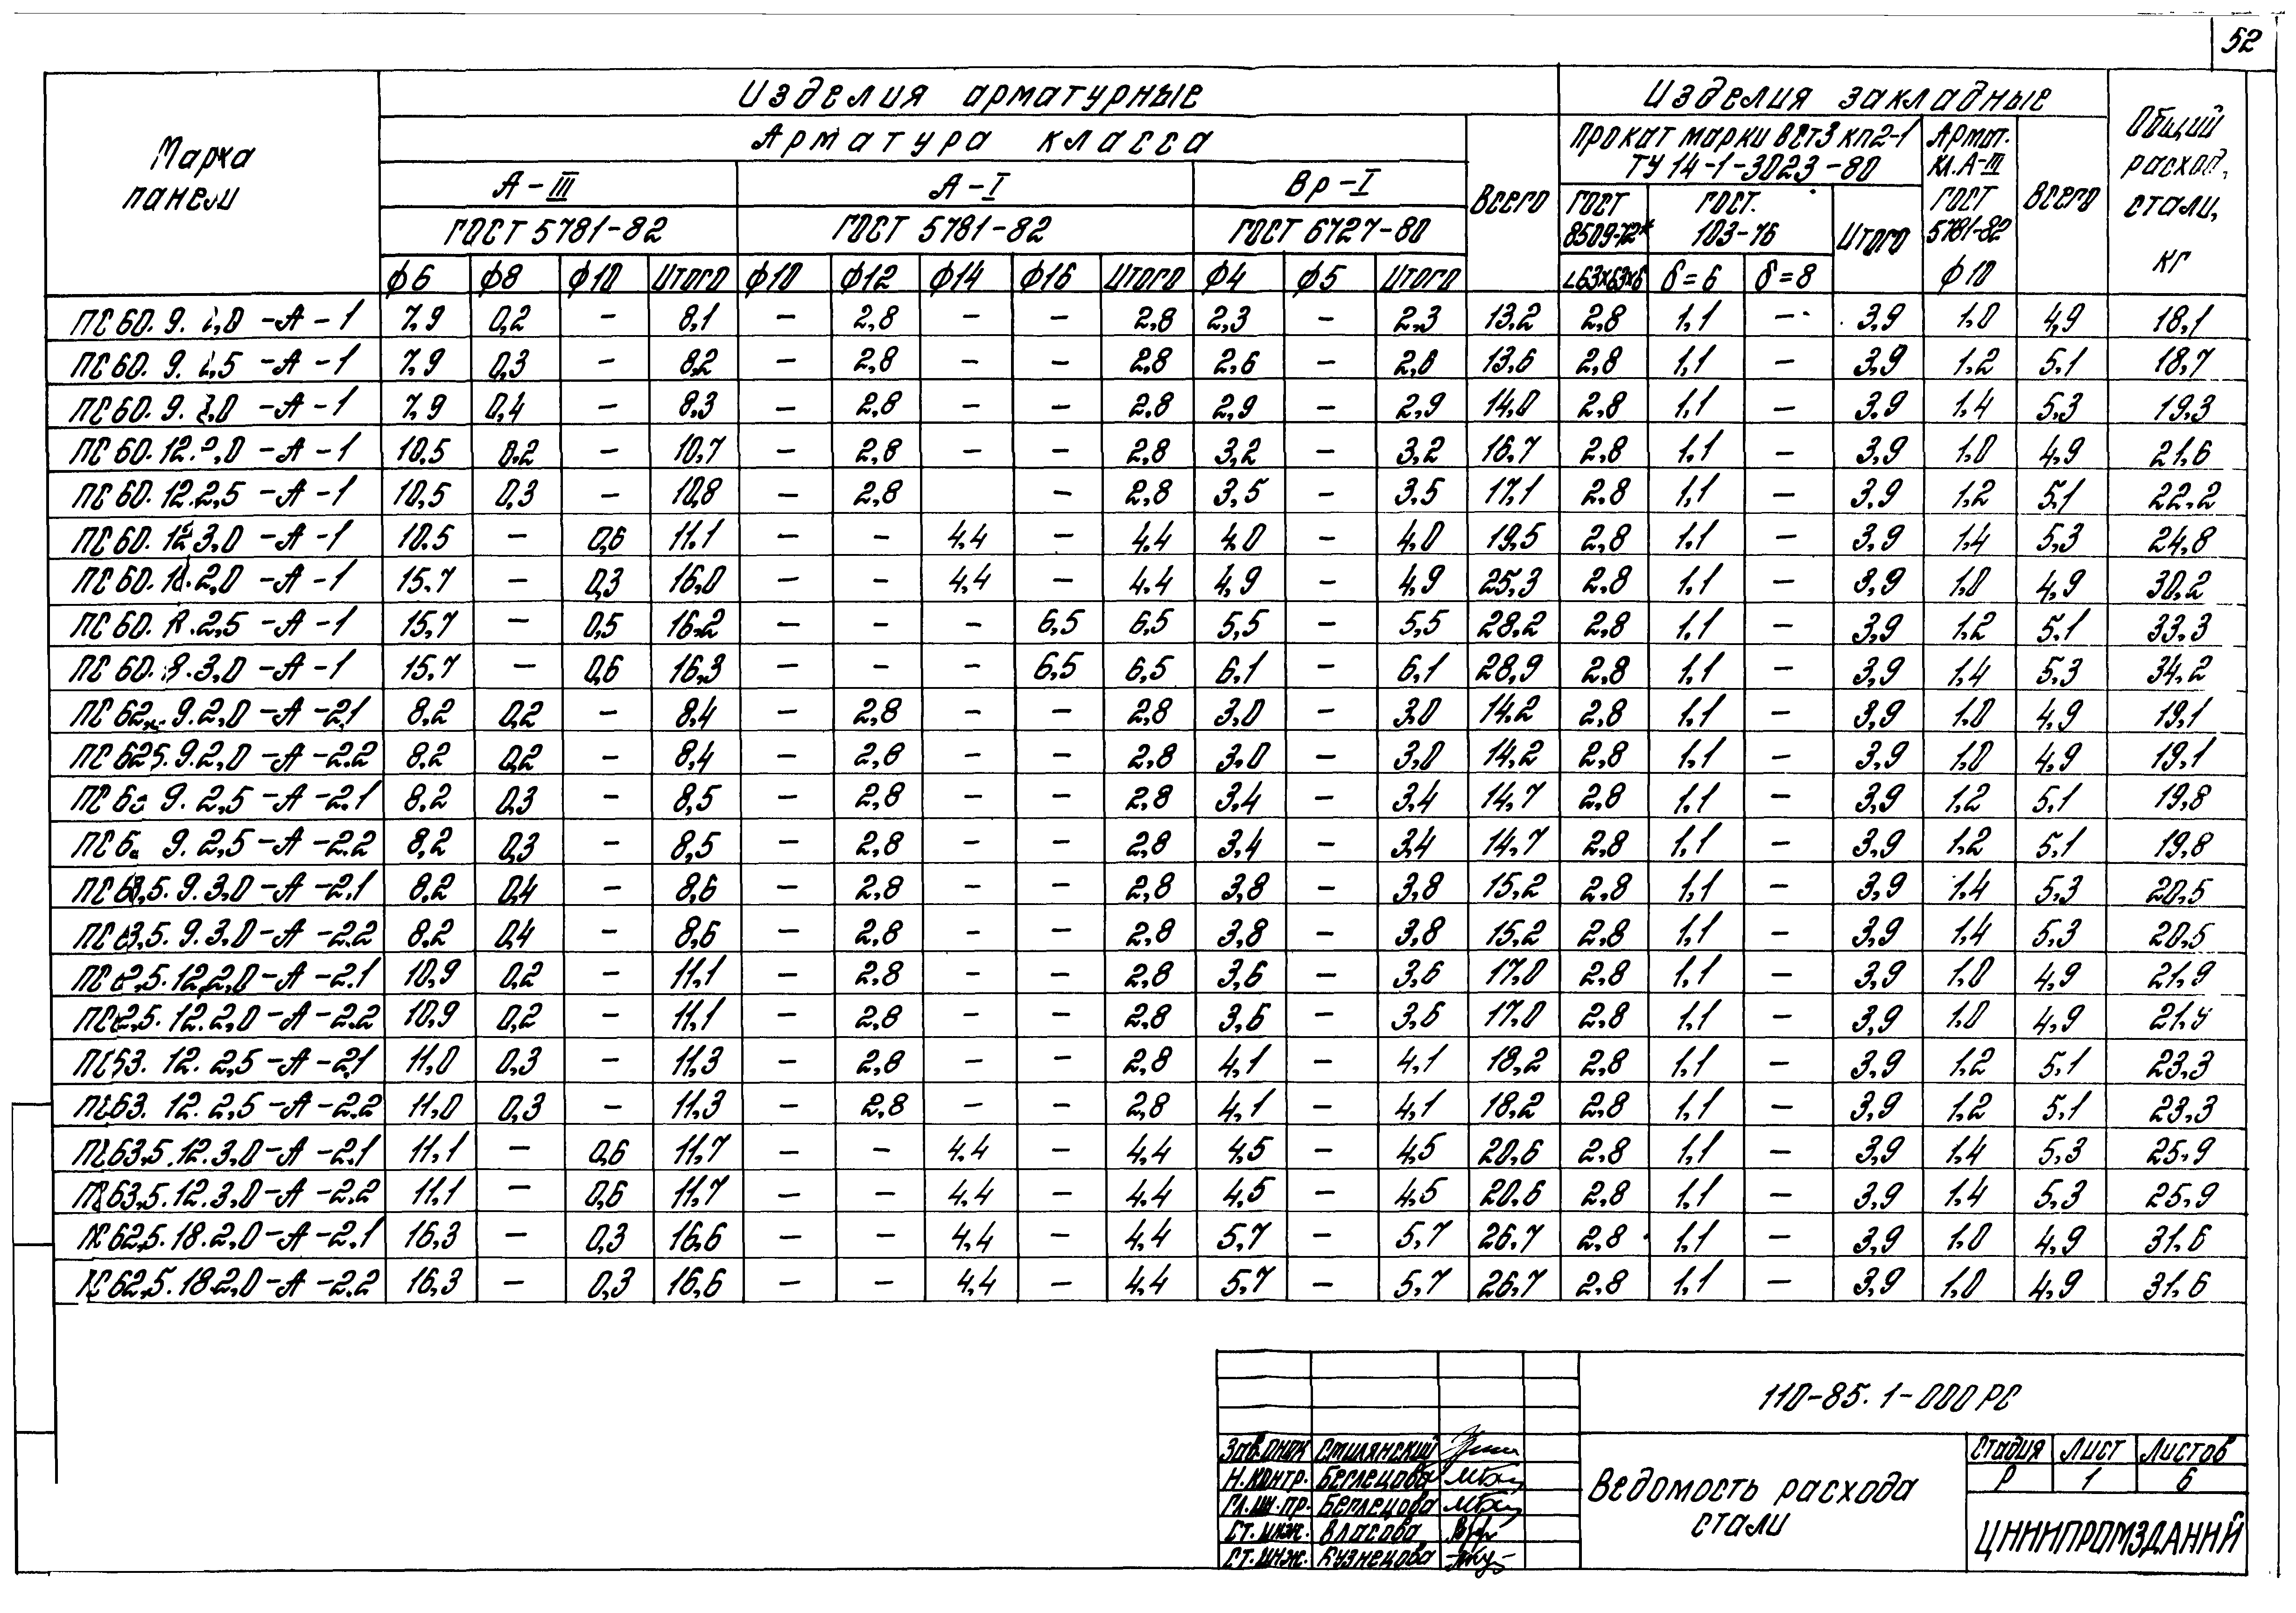 52
Марка панели
Изделия арматурные
Изделия закладные
Общий расход стали, кг
Арматура класса
Всего
Прокат марки ВСт3 кп2-1
ТУ 14-1-3023-80
Армат. кл. А-III
ГОСТ 5781-82
ф10
Всего
А-III
А-I
Вр-I
ГОСТ 5781-82
ГОСТ 5781-82
ГОСТ 6727-80
ГОСТ 8509-72*
ГОСТ. 103-76
Итого
ф6 ф8 ф10 Итого ф10 ф12 ф14 ф16 Итого ф4 ф5 Итого ∠63х63х6 δ=6 δ=8
ПС 60. 9. ,0 -А-1 7,9 0,2 - 8,1 - 2,8 - - 2,8 2,3 - 2,3 13,2 2,8 1,1 - 3,9 1,0 4,9 18,1
ПС 60. 9. ,5 -А-1 7,9 0,3 - 8,2 - 2,8 - - 2,8 2,6 - 2,6 13,6 2,8 1,1 - 3,9 1,2 5,1 18,7
ПС 60. 9. ,0 -А-1 7,9 0,4 - 8,3 - 2,8 - - 2,8 2,9 - 2,9 14,0 2,8 1,1 - 3,9 1,4 5,3 19,3
ПС 60. 12. 2,0 -А-1 10,5 0,2 - 10,7 - 2,8 - - 2,8 3,2 - 3,2 16,7 2,8 1,1 - 3,9 1,0 4,9 21,6
ПС 60. 12. 2,5 -А-1 10,5 0,3 - 10,8 - 2,8 - 2,8 3,5 - 3,5 17,1 2,8 1,1 - 3,9 1,2 5,1 22,2
ПС 60. 12 3,0 -А-1 10,5 - 0,6 11,1 - - 4,4 - 4,4 4,0 - 4,0 19,5 2,8 1,1 - 3,9 1,4 5,3 24,8
ПС 60. 18. 2,0 -А-1 15,7 - 0,3 16,0 - - 4,4 - 4,4 4,9 - 4,9 25,3 2,8 1,1 - 3,9 1,0 4,9 30,2
ПС 60. . 2,5 -А-1 15,7 - 0,5 16,2 - - - 6,5 6,5 5,5 - 5,5 28,2 2,8 1,1 - 3,9 1,2 5,1 33,3
ПС 60. 8. 3,0 -А-1 15,7 - 0,6 16,3 - - - 6,5 6,5 6,1 - 6,1 28,9 2,8 1,1 - 3,9 1,4 5,3 34,2
ПС 62,. 9. 2,0 -А-2.1 8,2 0,2 - 8,4 - 2,8 - - 2,8 3,0 - 3,0 14,2 2,8 1,1 - 3,9 1,0 4,9 19,1
ПС 62,5. 9. 2,0 -А-2.2 8,2 0,2 - 8,4 - 2,8 - - 2,8 3,0 - 3,0 14,2 2,8 1,1 - 3,9 1,0 4,9 19,1
ПС 6 9. 2,5 -А-2.1 8,2 0,3 - 8,5 - 2,8 - - 2,8 3,4 - 3,4 14,7 2,8 1,1 - 3,9 1,2 5,1 19,8
ПС 6 9. 2,5 -А-2.2 8,2 0,3 - 8,5 - 2,8 - - 2,8 3,4 - 3,4 14,7 2,8 1,1 - 3,9 1,2 5,1 19,8
ПС 63,5. 9. 3,0 -А-2.1 8,2 0,4 - 8,6 - 2,8 - - 2,8 3,8 - 3,8 15,2 2,8 1,1 - 3,9 1,4 5,3 20,5
ПС 63,5. 9. 3,0 -А-2.2 8,2 0,4 - 8,6 - 2,8 - - 2,8 3,8 - 3,8 15,2 2,8 1,1 - 3,9 1,4 5,3 20,5
ПС 62,5. 12. 2,0 -А-2.1 10,9 0,2 - 11,1 - 2,8 - - 2,8 3,6 - 3,6 17,0 2,8 1,1 - 3,9 1,0 4,9 21,9
ПС 62,5. 12. 2,0 -А-2.2 10,9 0,2 - 11,1 - 2,8 - - 2,8 3,6 - 3,6 17,0 2,8 1,1 - 3,9 1,0 4,9 21,9
ПС 63. 12. 2,5 -А-2.1 11,0 0,3 - 11,3 - 2,8 - - 2,8 4,1 - 4,1 18,2 2,8 1,1 - 3,9 1,2 5,1 23,3
ПС 63. 12. 2,5 -А-2.2 11,0 0,3 - 11,3 - 2,8 - - 2,8 4,1 - 4,1 18,2 2,8 1,1 - 3,9 1,2 5,1 23,3
ПС 63,5. 12. 3,0 -А-2.1 11,1 - 0,6 11,7 - - 4,4 - 4,4 4,5 - 4,5 20,6 2,8 1,1 - 3,9 1,4 5,3 25,9
ПС 63,5. 12. 3,0 -А-2.2 11,1 - 0,6 11,7 - - 4,4 - 4,4 4,5 - 4,5 20,6 2,8 1,1 - 3,9 1,4 5,3 25,9
ПС 62,5. 18. 2,0 -А-2.1 16,3 - 0,3 16,6 - - 4,4 - 4,4 5,7 - 5,7 26,7 2,8 1,1 - 3,9 1,0 4,9 31,6
ПС 62,5. 18. 2,0 -А-2.2 16,3 - 0,3 16,6 - - 4,4 - 4,4 5,7 - 5,7 26,7 2,8 1,1 - 3,9 1,0 4,9 31,6
110-85. 1-000 РС
Зав.ОНОК Смилянский
Н.контр. Беглецова
Гл.ин.пр. Беглецова
Ст.инж. Власова
Ст.инж. Кузнецова
Ведомость расхода
стали
Стадия Лист Листов
Р 1 6
ЦНИИПРОМЗДАНИЙ